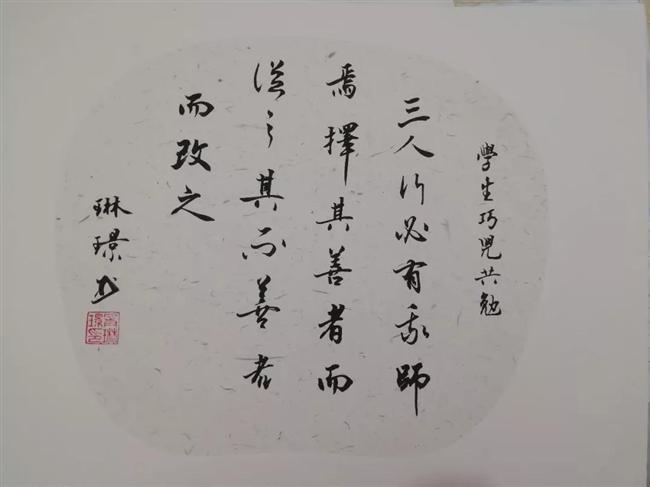 學生巧兒共勉
三人行必有我師
焉擇其善者而
從之其不善者
而改之
琳璟书